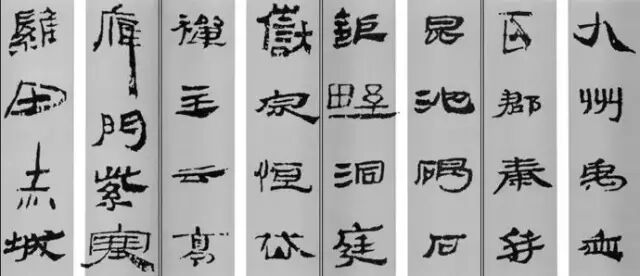 九州禹
百郡秦并
昆池碣石
鉅野洞庭
嶽宗恒岱
禪主云亭
雁門紫塞
雞田赤城